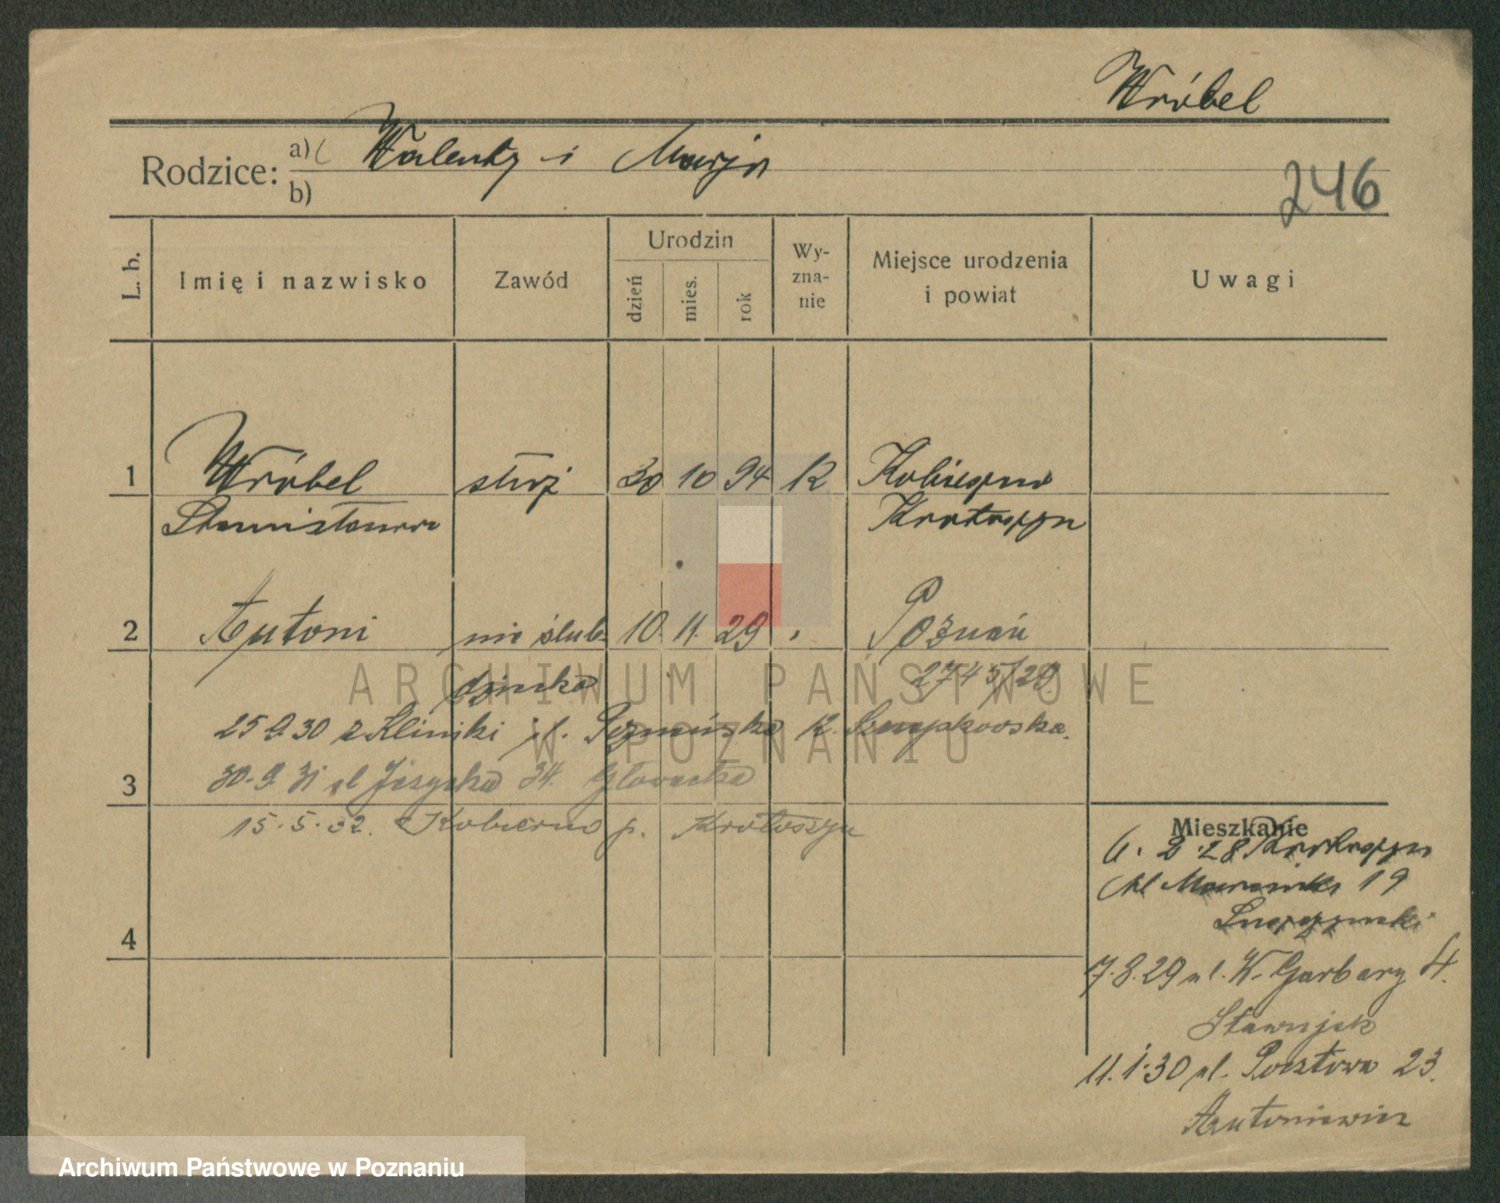 Wróbel
Rodzice: a) Walenty i Marja
b)
246
L. b.
Imię i nazwisko
Zawód
Urodzin
dzień
mies.
rok
Wy-
zna-
nie
Miejsce urodzenia
i powiat
Uwagi
1 Wróbel służ 30 10 94 K Kobierno
Stanisława Krotoszyn
2 Antoni nie ślub. 10. 11. 29 Poznań
dziecko 2745/29
25.9.30 z Kliniki ul. K. Szczepkowska.
3 30.9.31 ul 34. Głowacka
15.5.32. Kobierno p. Krotoszyn
4
Mieszkanie
6. 2.28 Krotoszyn
ul 19
7.8.29 ul. W. Garbary 4.
Stawujak
11.1.30 ul. Pocztowa 23.
Antoniewicz
ARCHIWUM PAŃSTWOWE
W POZNANIU
Archiwum Państwowe w Poznaniu